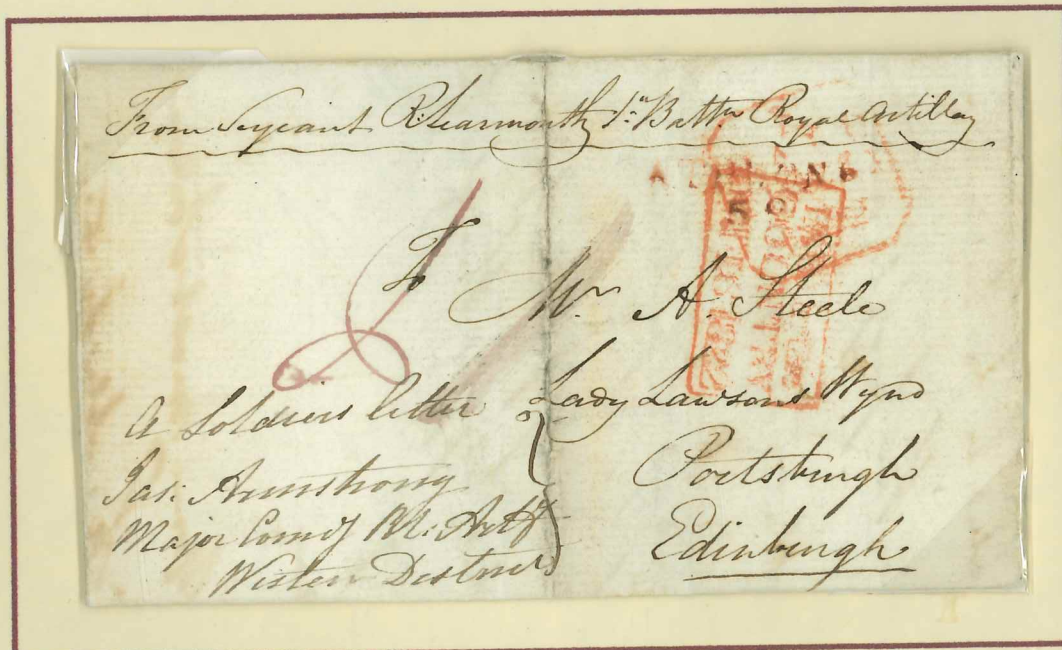 From Serjeant R: Learmonth 1st Battn Royal Artillery
ATHLONE
59
To
Mr. A. Steele
Lady Lawsons Wynd
Portsburgh
Edinburgh
A Soldiers letter
Jas: Armstrong
Major Comdg Rl: Arty
Western District